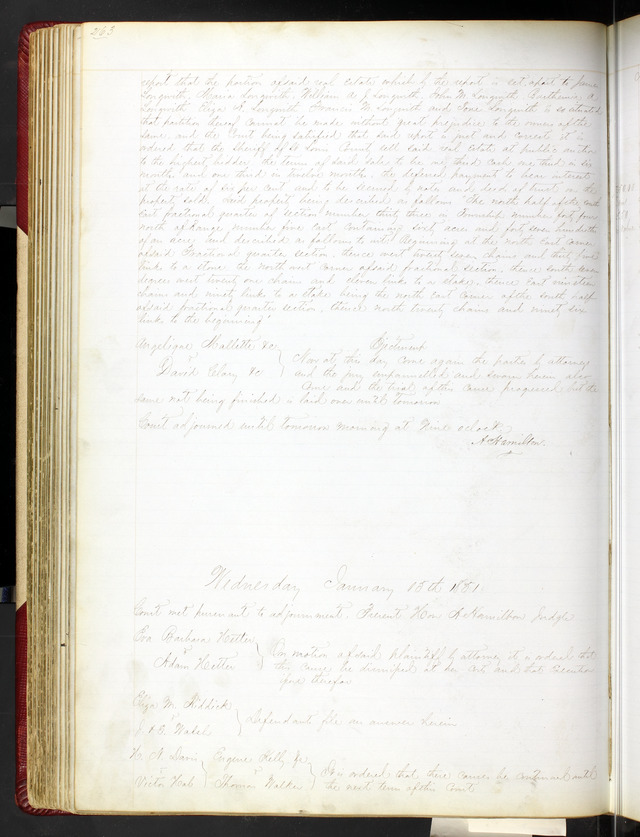 263
report that the portion of said real estate which by the report is set apart to
Longwith Longwith William A J Longwith John W Longwith A
Longwith Eliza Longwith Francis M Longwith and Longwith is so situated
that partition thereof cannot be made without great prejudice to the owners of the
same and the Court being satisfied that said report is just and correct it is
ordered that the Sheriff of St Louis County sell said real estate at public auction
to the highest bidder the terms of said sale to be one third cash one third in six
months and one third in twelve months the deferred payments to bear interest
at the rate of six per cent and to be secured by notes and deed of trust on the
property sold. Said property being described as follows The north half of the south
east fractional quarter of section number thirty three in Township number forty four
north of range number five east containing sixty acres and forty seven hundredths
of an acre and described as follows to wit Beginning at the north east corner
of said Fractional quarter section, thence west twenty seven chains and thirty five
links to a stone the north west corner of said fractional section thence south seven
degrees west twenty one chains and eleven links to a stake, thence East nineteen
chains and ninety links to a stake being the north East corner of the south half
of said fractional quarter section, thence north twenty chains and ninety six
links to the beginning
Angelique Mallette &c
vs
David &c
Ejectment
Now at this day come again the parties by attorney
and the jury empannelled and sworn herein also
come and the trial of this cause progressed but the
same not being finished is laid over until tomorrow
Court adjourned until tomorrow morning at Nine oclock
A Hamilton
Wednesday January 15th 1851
Court met pursuant to adjournment. Present Hon A Hamilton Judge
Eva Barbara Hetter
vs
Adam Hetter
On motion of said plaintiff by attorney it is ordered that
this cause be dismissed at her cost and that Execution
issue therefor
Eliza M. Riddick
vs
J & B Walsh
Defendants file an answer herein
Wm A Davis
vs
Victor Hab
Eugene Kelly &c
vs
Thomas Walker
It is ordered that these causes be continued until
the next term of this Court